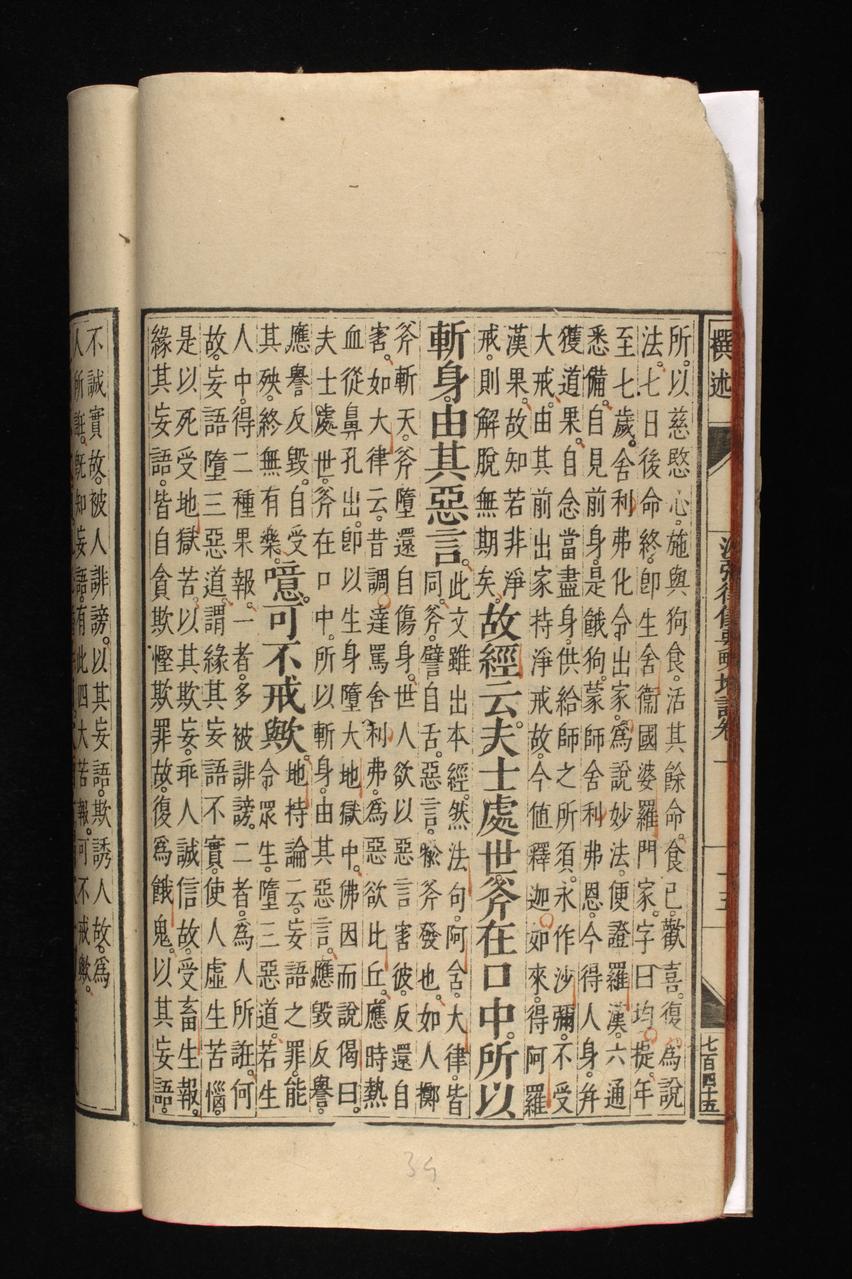 撰述
沙彌律儀要略增註卷上
十五
七百四十五
所以慈愍心。施與狗食。活其餘命。食已。歡喜。復爲說
法。七日後命終。卽生舍衞國婆羅門家。字曰均提。年
至七歲。舍利弗化令出家。爲說妙法。便證羅漢。六通
悉備。自見前身。是餓狗。蒙師舍利弗恩。今得人身。幷
獲道果。自念當盡身。供給師之所須。永作沙彌。不受
大戒。由其前出家持淨戒故。今値釋迦如來。得阿羅
漢果。故知若非淨
戒。則解脫無期矣。故經云。夫士處世。斧在口中。所以
斬身。由其惡言。此文雖出本經。然法句。阿含。大律。皆
同。斧。譬自舌。惡言。猶斧發也。如人擲
斧斬天。斧墮還自傷身。世人欲以惡言害彼。反還自
害。如大律云。昔調達罵舍利弗。爲惡欲比丘。應時熱
血從鼻孔出。卽以生身墮大地獄中。佛因而說偈曰。
夫士處世。斧在口中。所以斬身。由其惡言。應毀反譽。
應譽反毀。自受
其殃。終無有樂。噫。可不戒歟。地持論云。妄語之罪。能
令眾生。墮三惡道。若生
人中。得二種果報。一者。多被誹謗。二者。爲人所誑。何
故。妄語墮三惡道。謂緣其妄語不實。使人虛生苦惱。
是以死受地獄苦。以其欺妄。乖人誠信故。受畜生報。
緣其妄語。皆自貪欺慳欺罪故。復爲餓鬼。以其妄語。
不誠實故。被人誹謗。以其妄語。欺誘人故。爲
人所誑。旣知妄語。有此四大苦報。可不戒歟。